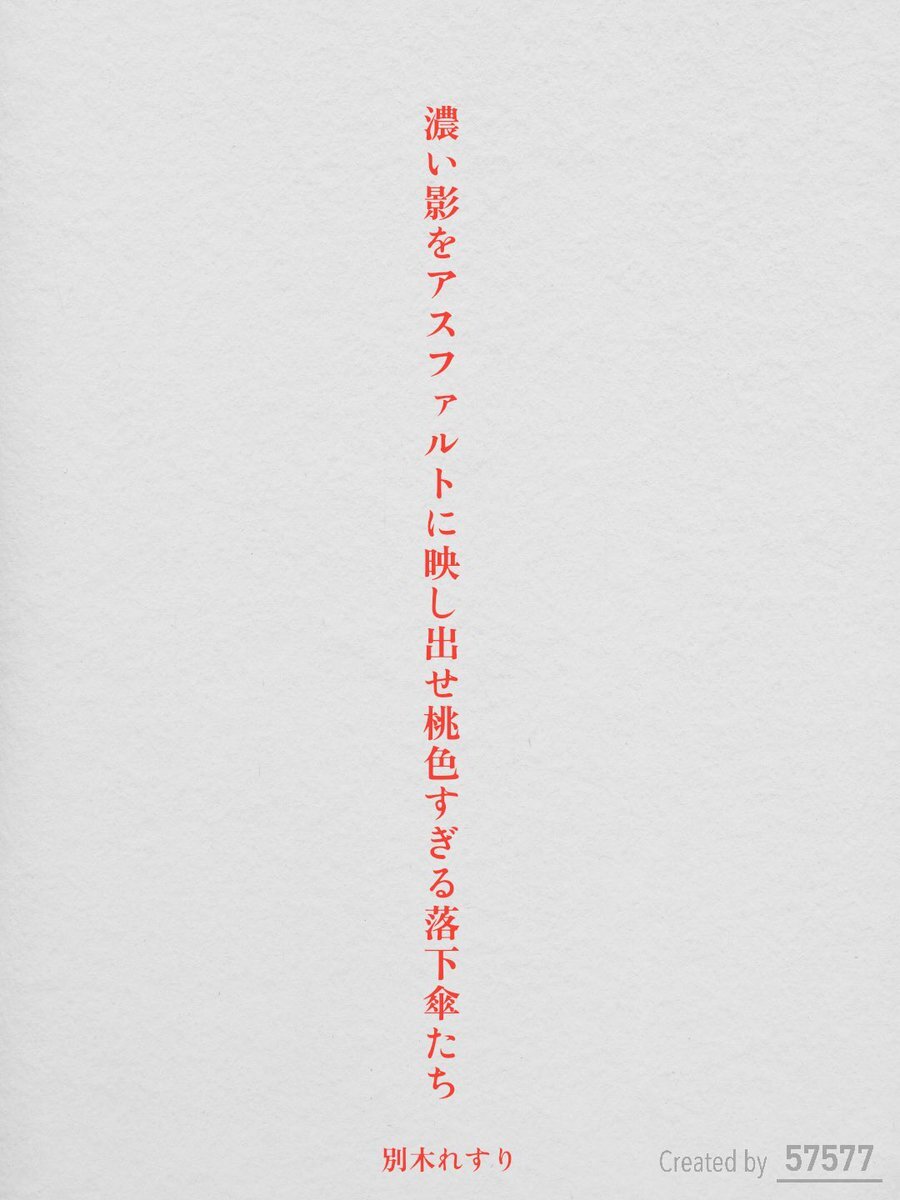 濃い影をアスファルトに映し出せ桃色すぎる落下傘たち
別木れすり
Created by 57577